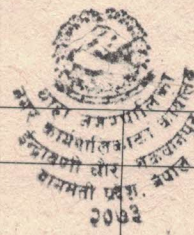 थाहा नगरपालिका
नगर कार्यपालिकाको कार्यालय
चौर मकवानपुर
प्रदेश, नेपाल
२०७३